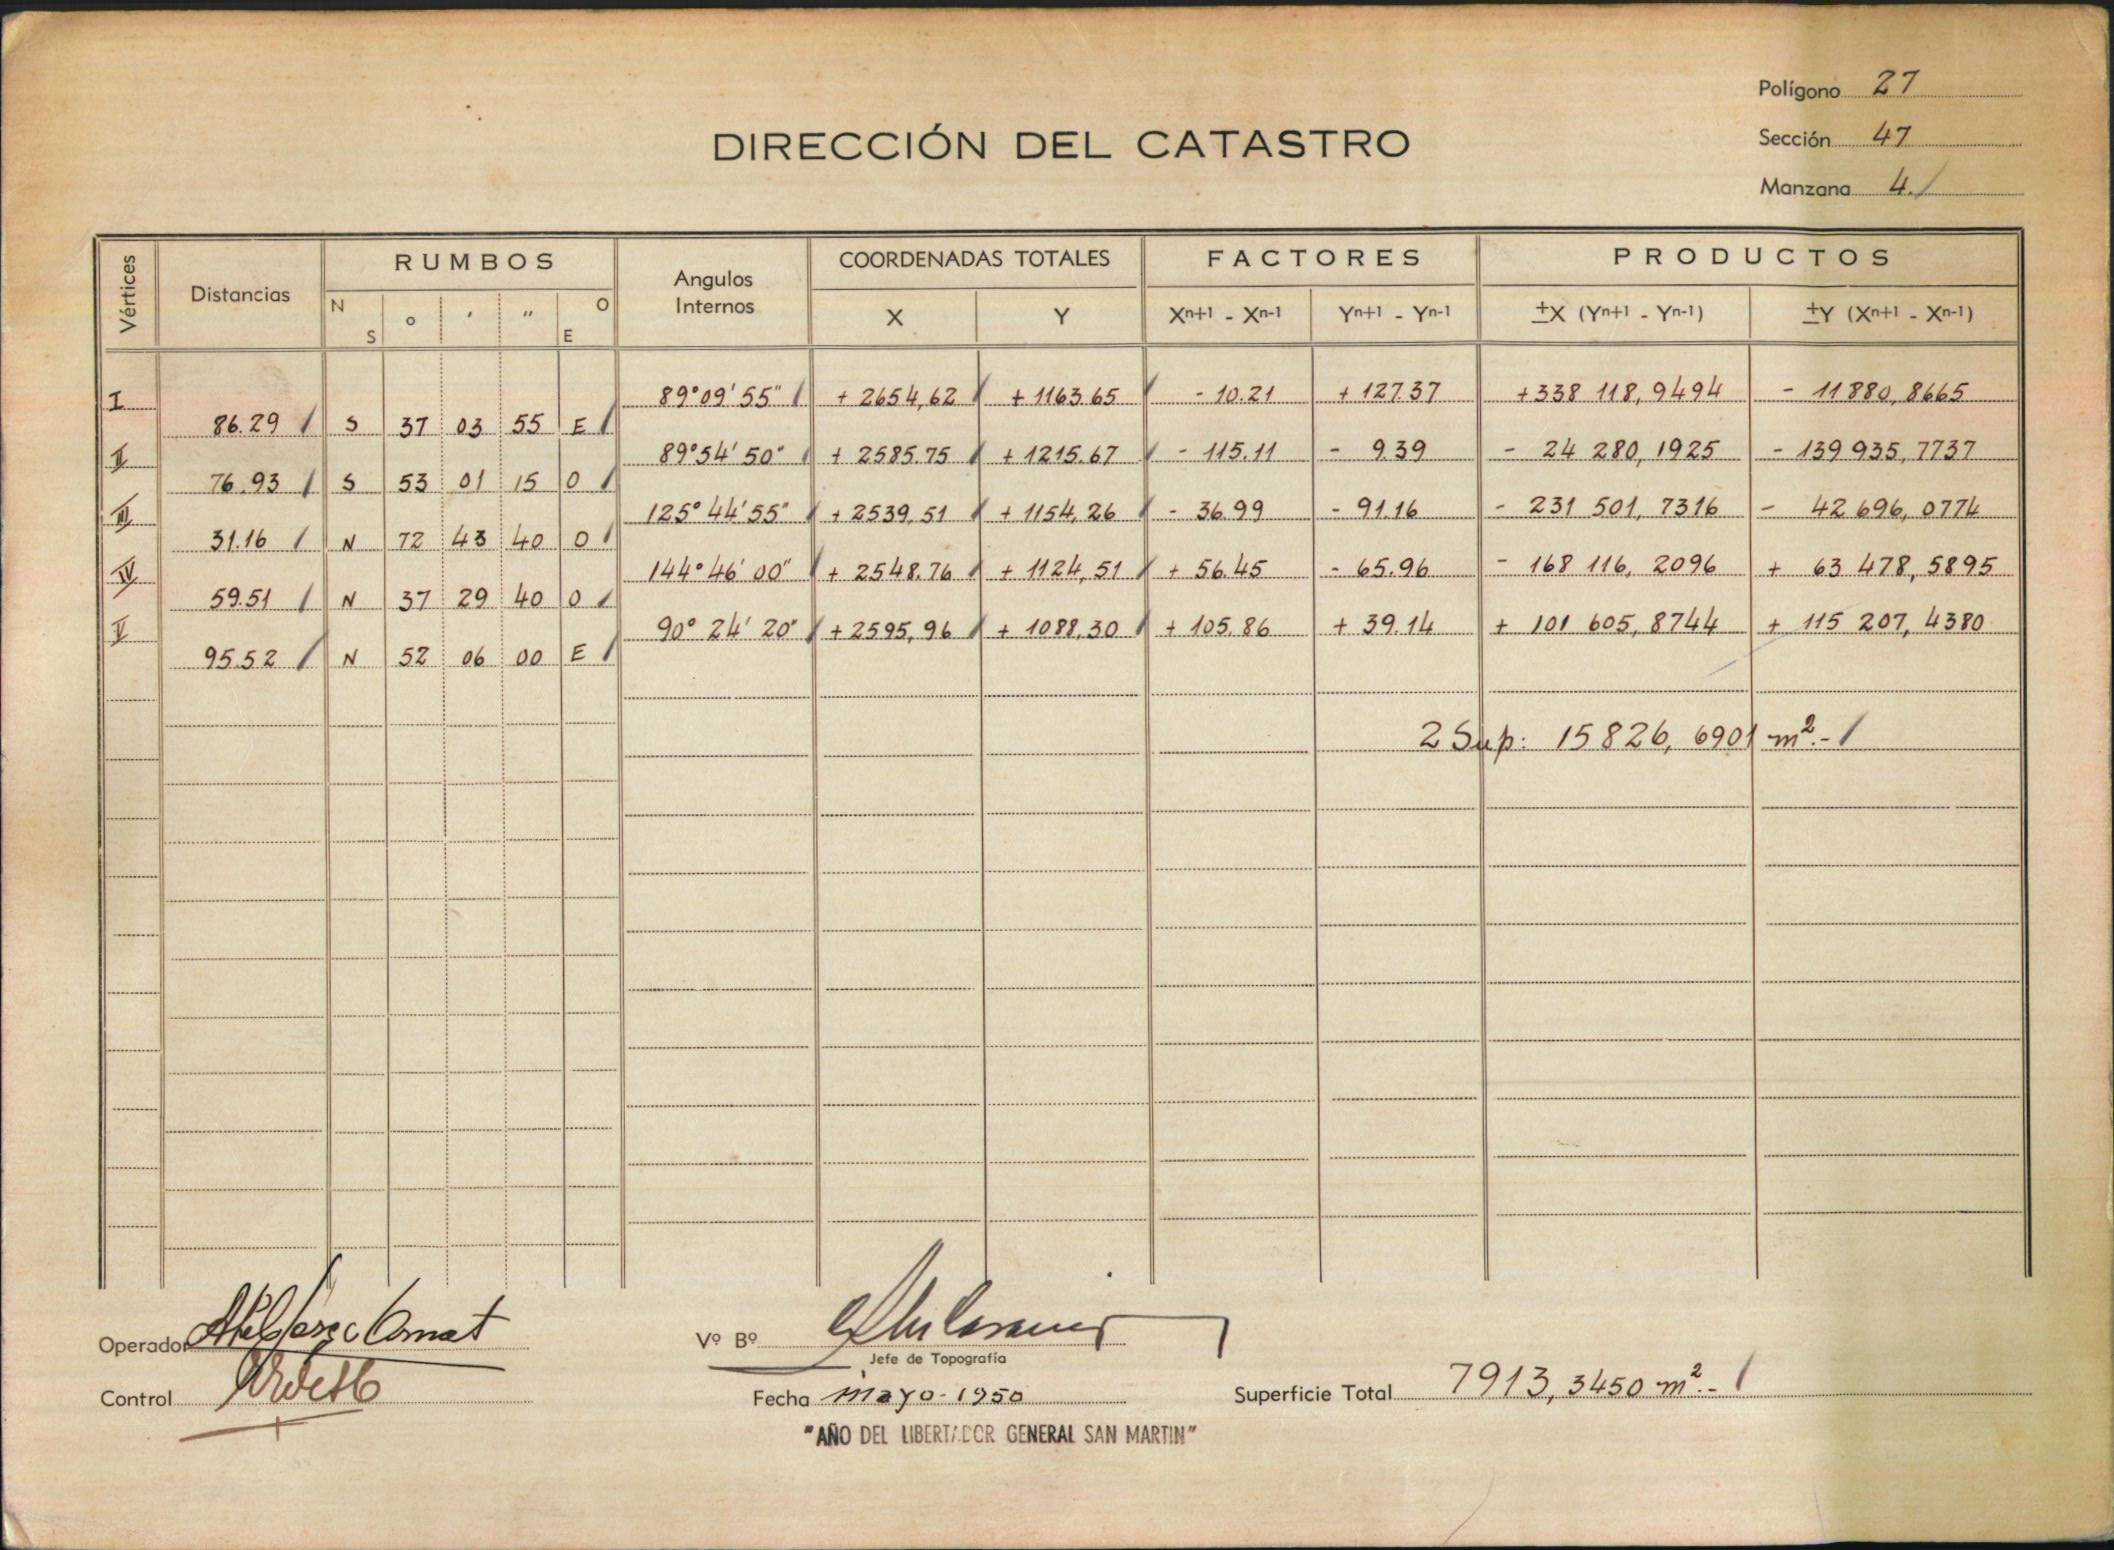 Polígono 27
DIRECCIÓN DEL CATASTRO
Sección 47
Manzana 4.
Vértices Distancias RUMBOS Angulos Internos COORDENADAS TOTALES FACTORES PRODUCTOS
N S ° ' " O E X Y Xn+1 - Xn-1 Yn+1 - Yn-1 ±X (Yn+1 - Yn-1) ±Y (Xn+1 - Xn-1)
I 89°09'55" + 2654,62 + 1163.65 - 10.21 + 127.37 +338 118,9494 - 11880,8665
86.29 S 37 03 55 E
II 89°54'50" + 2585.75 + 1215.67 - 115.11 - 9.39 - 24 280,1925 - 139 935,7737
76.93 S 53 01 15 O
III 125°44'55" + 2539,51 + 1154,26 - 36.99 - 91.16 - 231 501,7316 - 42 696,0774
31.16 N 72 43 40 O
IV 144°46'00" + 2548.76 + 1124,51 + 56.45 - 65.96 - 168 116,2096 + 63 478,5895
59.51 N 37 29 40 O
V 90°24'20" + 2595,96 + 1088,30 + 105.86 + 39.14 + 101 605,8744 + 115 207,4380
95.52 N 52 06 00 E
2 Sup: 15826,6901 m².-
Operador
Vº Bº
Jefe de Topografía
Control
Fecha mayo-1950
Superficie Total 7913,3450 m².-
"AÑO DEL LIBERTADOR GENERAL SAN MARTIN"